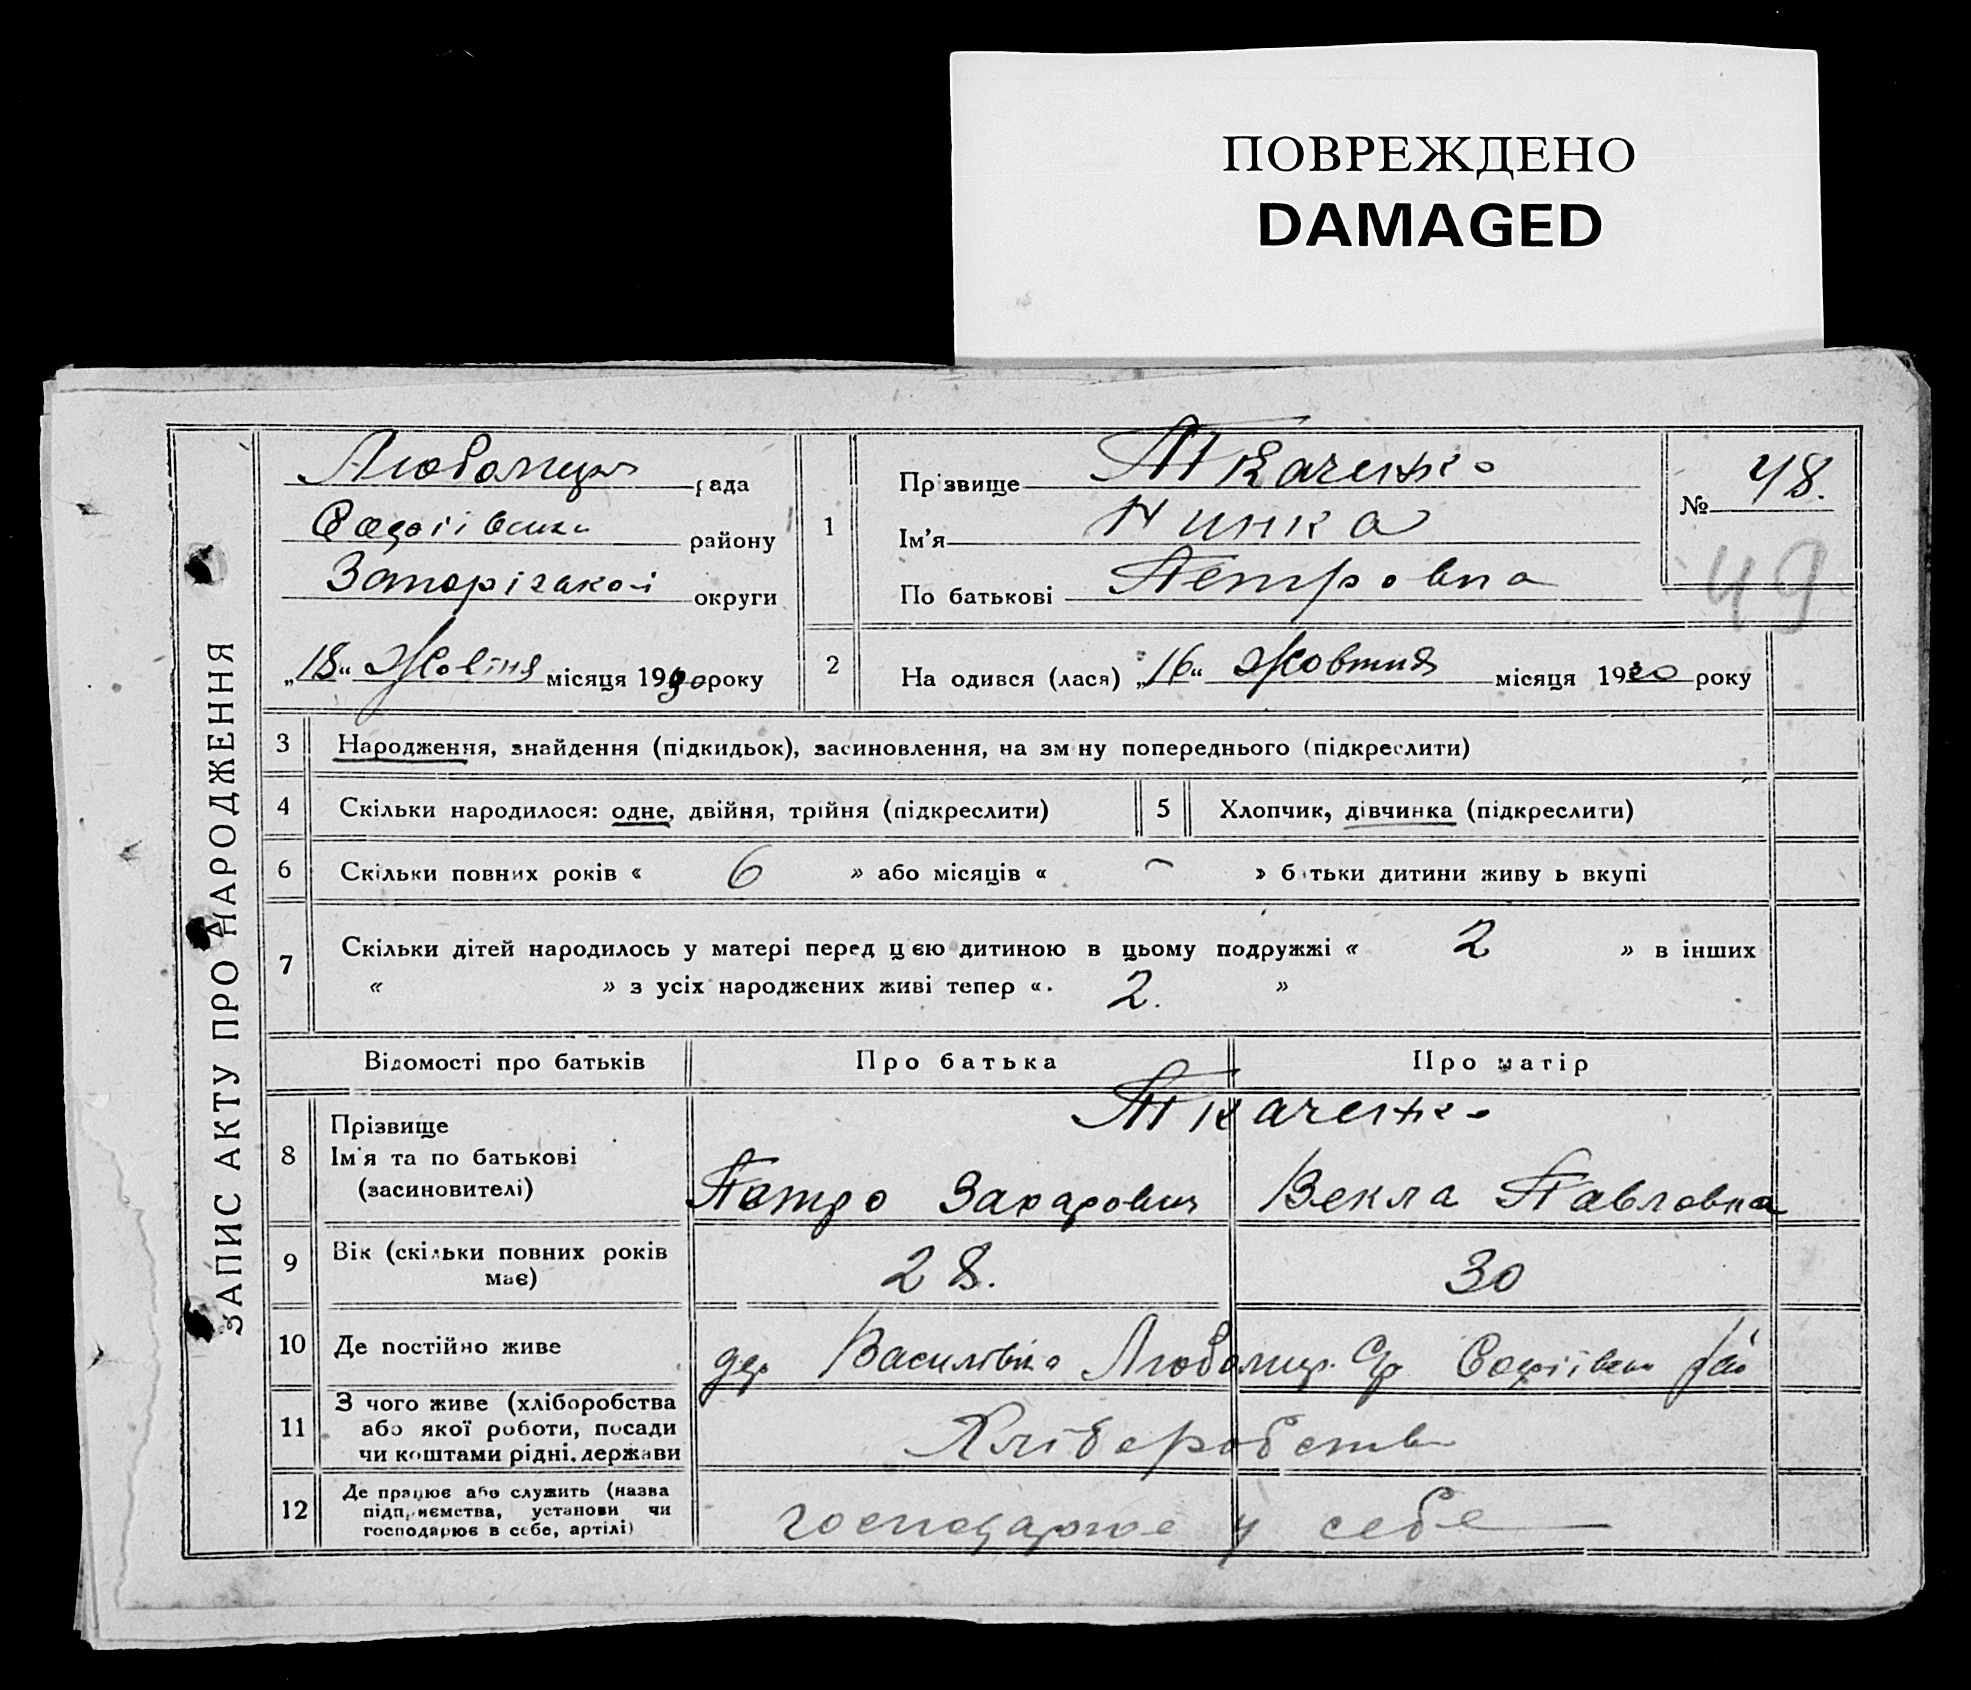 ПОВРЕЖДЕНО
DAMAGED
ЗАПИС АКТУ ПРО НАРОДЖЕННЯ
рада
району
Запорізької округи
„18“ Жовтня місяця 1930 року
1
Прізвище Ткаченко
Ім'я Нинка
По батькові Петровна
№ 48.
49
2
На одився (лася) „16“ Жовтня місяця 1930 року
3 Народження, знайдення (підкидьок), засиновлення, на зм ну попереднього (підкреслити)
4 Скільки народилося: одне, двійня, трійня (підкреслити)
5 Хлопчик, дівчинка (підкреслити)
6 Скільки повних років « 6 » або місяців « – » б тьки дитини живу ь вкупі
7 Скільки дітей народилось у матері перед цією дитиною в цьому подружжі « 2 » в інших
« » з усіх народжених живі тепер « 2. »
Відомості про батьків Про батька Про матір
8 Прізвище
Ім'я та по батькові
(засиновителі)
Ткаченко
Петро Захарович Векла Павловна
9 Вік (скільки повних років
має)
28. 30
10 Де постійно живе
дер Василівка Любомир. С/р Софіївськ рай
11 З чого живе (хліборобства
або якої роботи, посади
чи коштами рідні, держави
Хліборобств
12 Де працює або служить (назва
підприємства, установи чи
господарює в себе, артілі)
господарює у себе